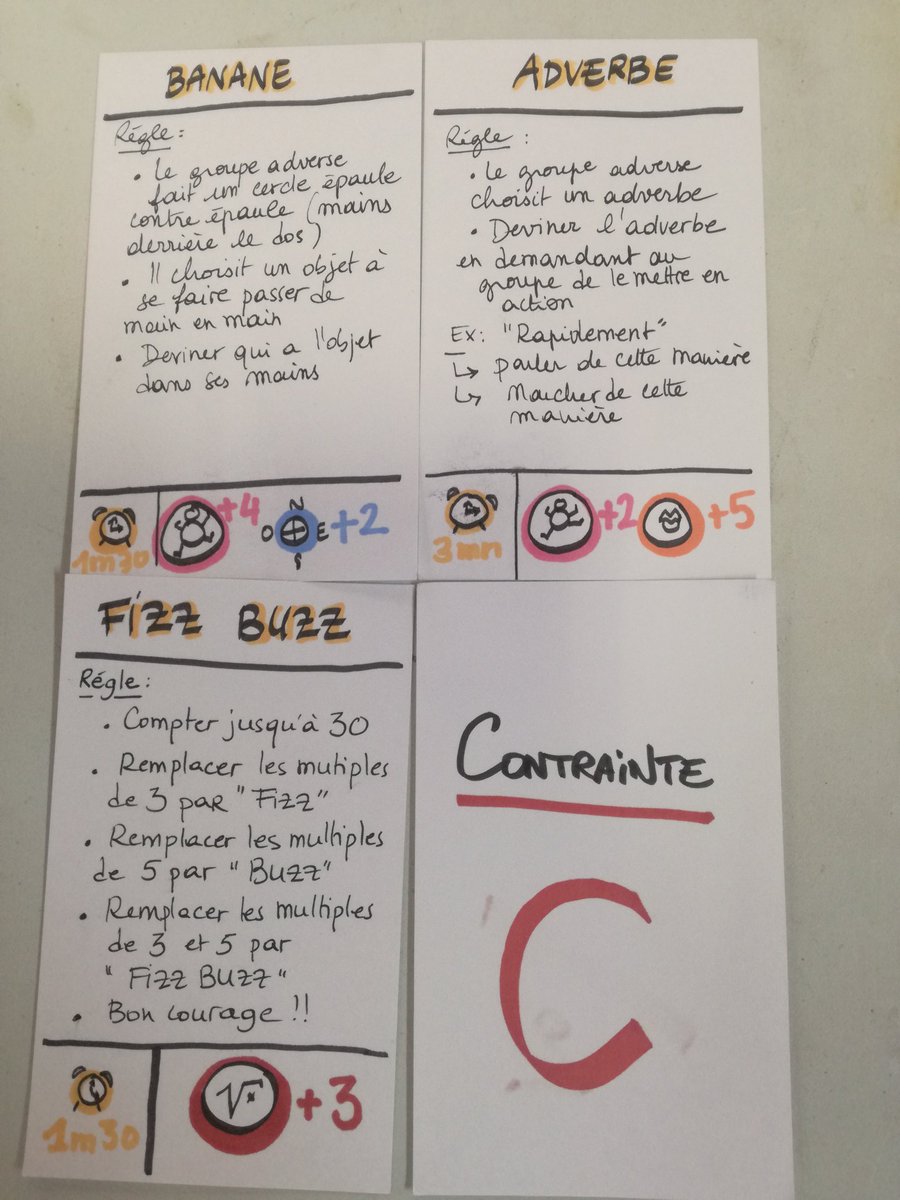 BANANE
Régle :
• Le groupe adverse
fait un cercle épaule
contre épaule (mains
derrière le dos)
• Il choisit un objet à
se faire passer de
main en main
• Deviner qui a l'objet
dans ses mains
1m30
+4
N
O
E
S
+2
ADVERBE
Régle :
• Le groupe adverse
choisit un adverbe
• Deviner l'adverbe
en demandant au
groupe de le mettre en
action
Ex: "Rapidement"
↳ parler de cette manière
↳ Marcher de cette
manière
3mn
+2
+5
FIZZ BUZZ
Régle :
• Compter jusqu'à 30
• Remplacer les mutiples
de 3 par "Fizz"
• Remplacer les multiples
de 5 par "Buzz"
• Remplacer les multiples
de 3 et 5 par
"Fizz BUZZ"
• Bon courage !!
1m30
√x
+3
CONTRAINTE
C